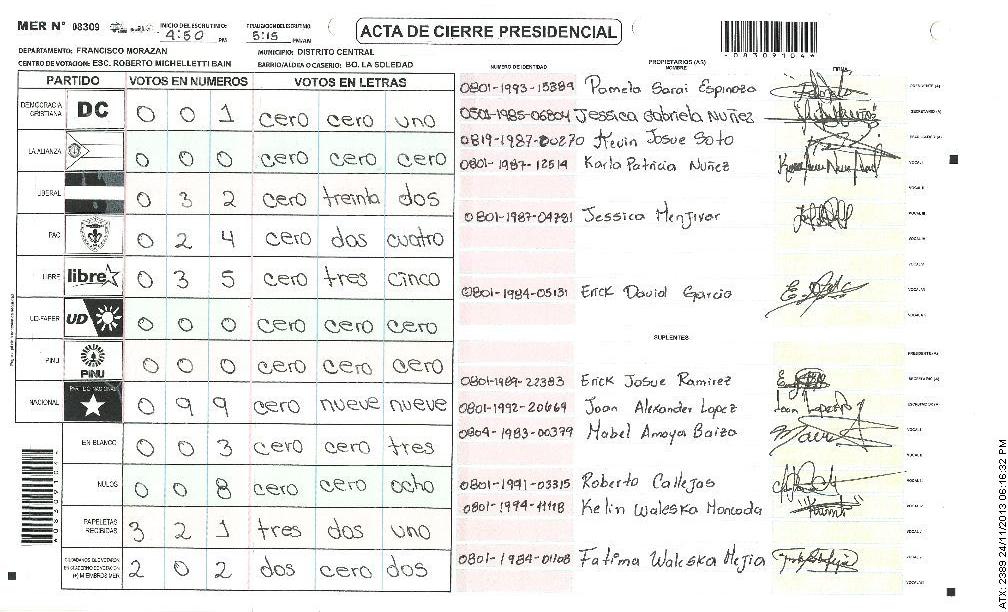 MER N° 08309
INICIO DEL ESCRUTINIO: 4:50 PM
FINALIZACION ESCRUTINIO: 5:15 PM/AM
ACTA DE CIERRE PRESIDENCIAL
*08309104*
DEPARTAMENTO: FRANCISCO MORAZAN
MUNICIPIO: DISTRITO CENTRAL
CENTRO DE VOTACION: ESC. ROBERTO MICHELLETTI BAIN
BARRIO/ALDEA O CASERIO: BO. LA SOLEDAD
PARTIDO VOTOS EN NUMEROS VOTOS EN LETRAS
DEMOCRACIA CRISTIANA DC 0 0 1 cero cero uno
LA ALIANZA 0 0 0 cero cero cero
LIBERAL 0 3 2 cero treinta dos
PAC 0 2 4 cero dos cuatro
LIBRE libre 0 3 5 cero tres cinco
UD-FAPER UD 0 0 0 cero cero cero
PINU PINU 0 0 0 cero cero cero
NACIONAL PARTIDO NACIONAL 0 9 9 cero nueve nueve
EN BLANCO 0 0 3 cero cero tres
NULOS 0 0 8 cero cero ocho
PAPELETAS RECIBIDAS 3 2 1 tres dos uno
(+) MIEMBROS MER 2 0 2 dos cero dos
NUMERO DE IDENTIDAD PROPIETARIOS (AS) NOMBRE FIRMA
0801-1993-15389 Pamela Sarai Espinoza PRESIDENTE (A)
0501-1985-06804 Jessica Gabriela Nuñez SECRETARIO (A)
0819-1987-00270 Kevin Josue Soto ESCRUTADOR (A)
0801-1987-12514 Karla Patricia Nuñez VOCAL I
VOCAL II
0801-1987-04781 Jessica Menjivar VOCAL III
VOCAL IV
VOCAL V
0801-1984-05131 Erick David Garcia VOCAL VI
SUPLENTES
PRESIDENTE (A)
0801-1989-22383 Erick Josue Ramirez SECRETARIO (A)
0801-1992-20669 Joan Alexander Lopez ESCRUTADOR (A)
0804-1983-00379 Mabel Amaya Baiza VOCAL I
0801-1991-03315 Roberto Callejas
0801-1994-11118 Kelin Waleska Moncada
0801-1984-01108 Fatima Waleska Mejia
ATX: 2389 24/11/2013 06:16:32 PM